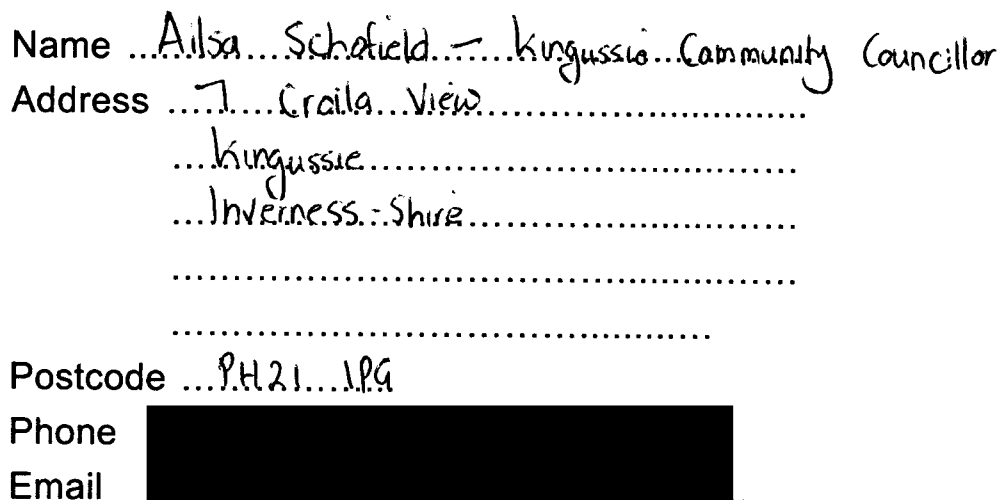 Name Ailsa Schofield - Kingussie Community Councillor
Address 7 Croila View
Kingussie
Inverness-Shire
Postcode PH21 1PG
Phone
Email